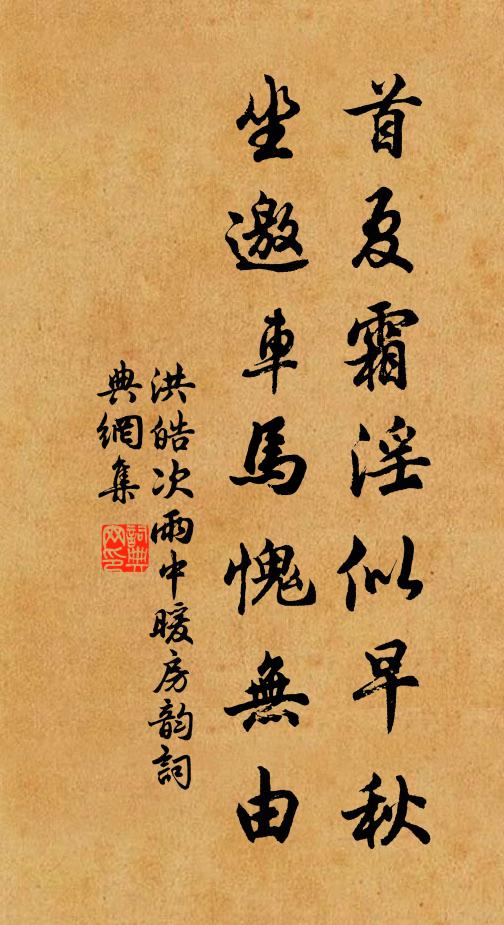 首夏霜淫似早秋
坐邀車馬愧無由
洪皓次雨中暖房韵詞
典網集
詞典網印